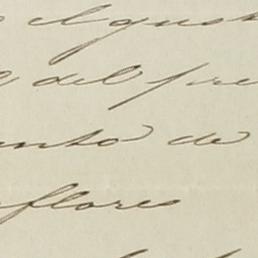 el gust
del pre
ento de
flores